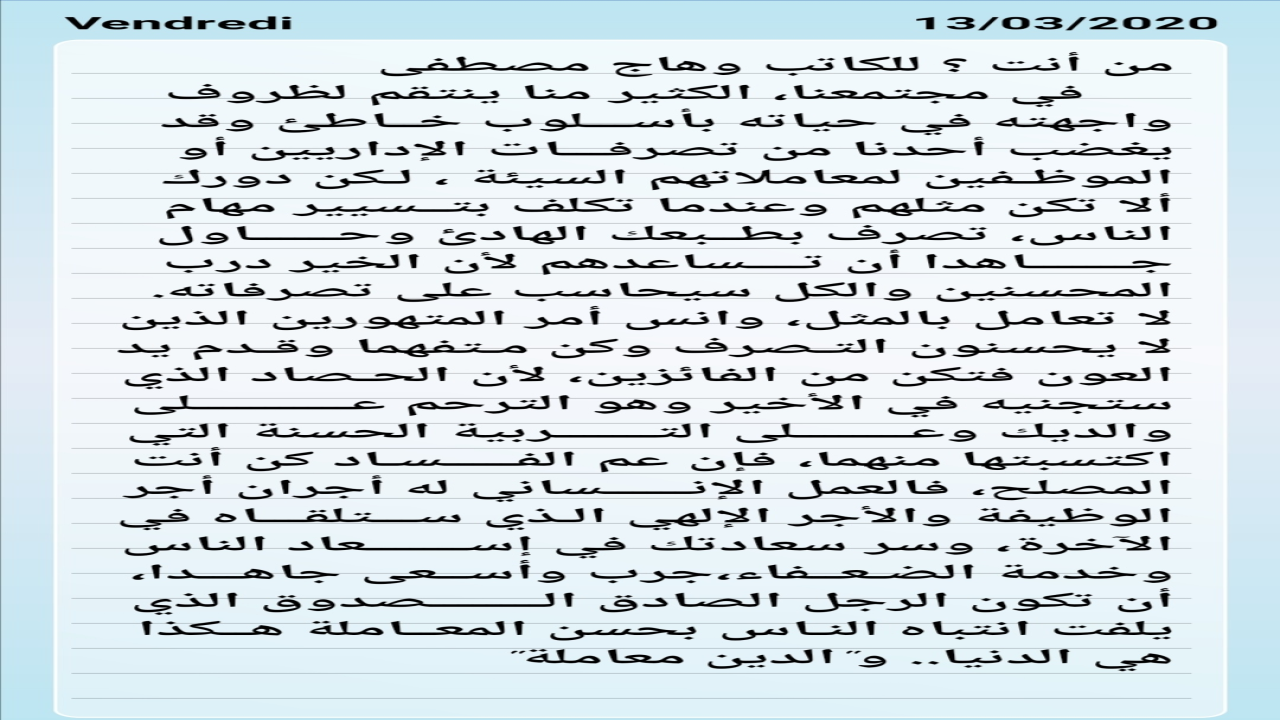 Vendredi 13/03/2020
من أنت ؟ للكاتب وهاج مصطفى
في مجتمعنا، الكثير منا ينتقم لظروف
واجهته في حياته بأســـلوب خــاطئ وقد
يغضب أحدنا من تصرفــات الإداريين أو
الموظـفين لمعاملاتهم السيئة ، لـكن دورك
ألا تكن مثلهم وعندما تكلف بتــسيير مهام
الناس، تصرف بطـبعك الهادئ وحـــــاول
جـــــاهدا أن تـــساعدهم لأن الخير درب
المحسنين والكل سيحاسب على تصرفاته.
لا تعامل بالمثل، وانس أمر المتهورين الذين
لا يحسنون التـصرف وكن مـتفهما وقـدم يد
العون فتكن من الفائزين، لأن الحـصاد الذي
ستجنيه في الأخير وهو الترحم عـــــــلى
والديك وعــــــلى التـــــربية الحسنة التي
اكتسبتها منهما، فإن عم الفـــساد كن أنت
المصلح، فالعمل الإنـــــساني له أجران أجر
الوظيفة والأجر الإلهي الـذي ســتلقــاه في
الآخرة، وسر سعادتك في إســــــعاد الناس
وخدمة الضـعـفاء،جرب وأسـعى جاهــدا،
أن تكون الرجل الصادق الـــــــصدوق الذي
يلفت انتباه النـاس بحسن المعـاملة هـكذا
هي الدنيا.. و"الدين معاملة"